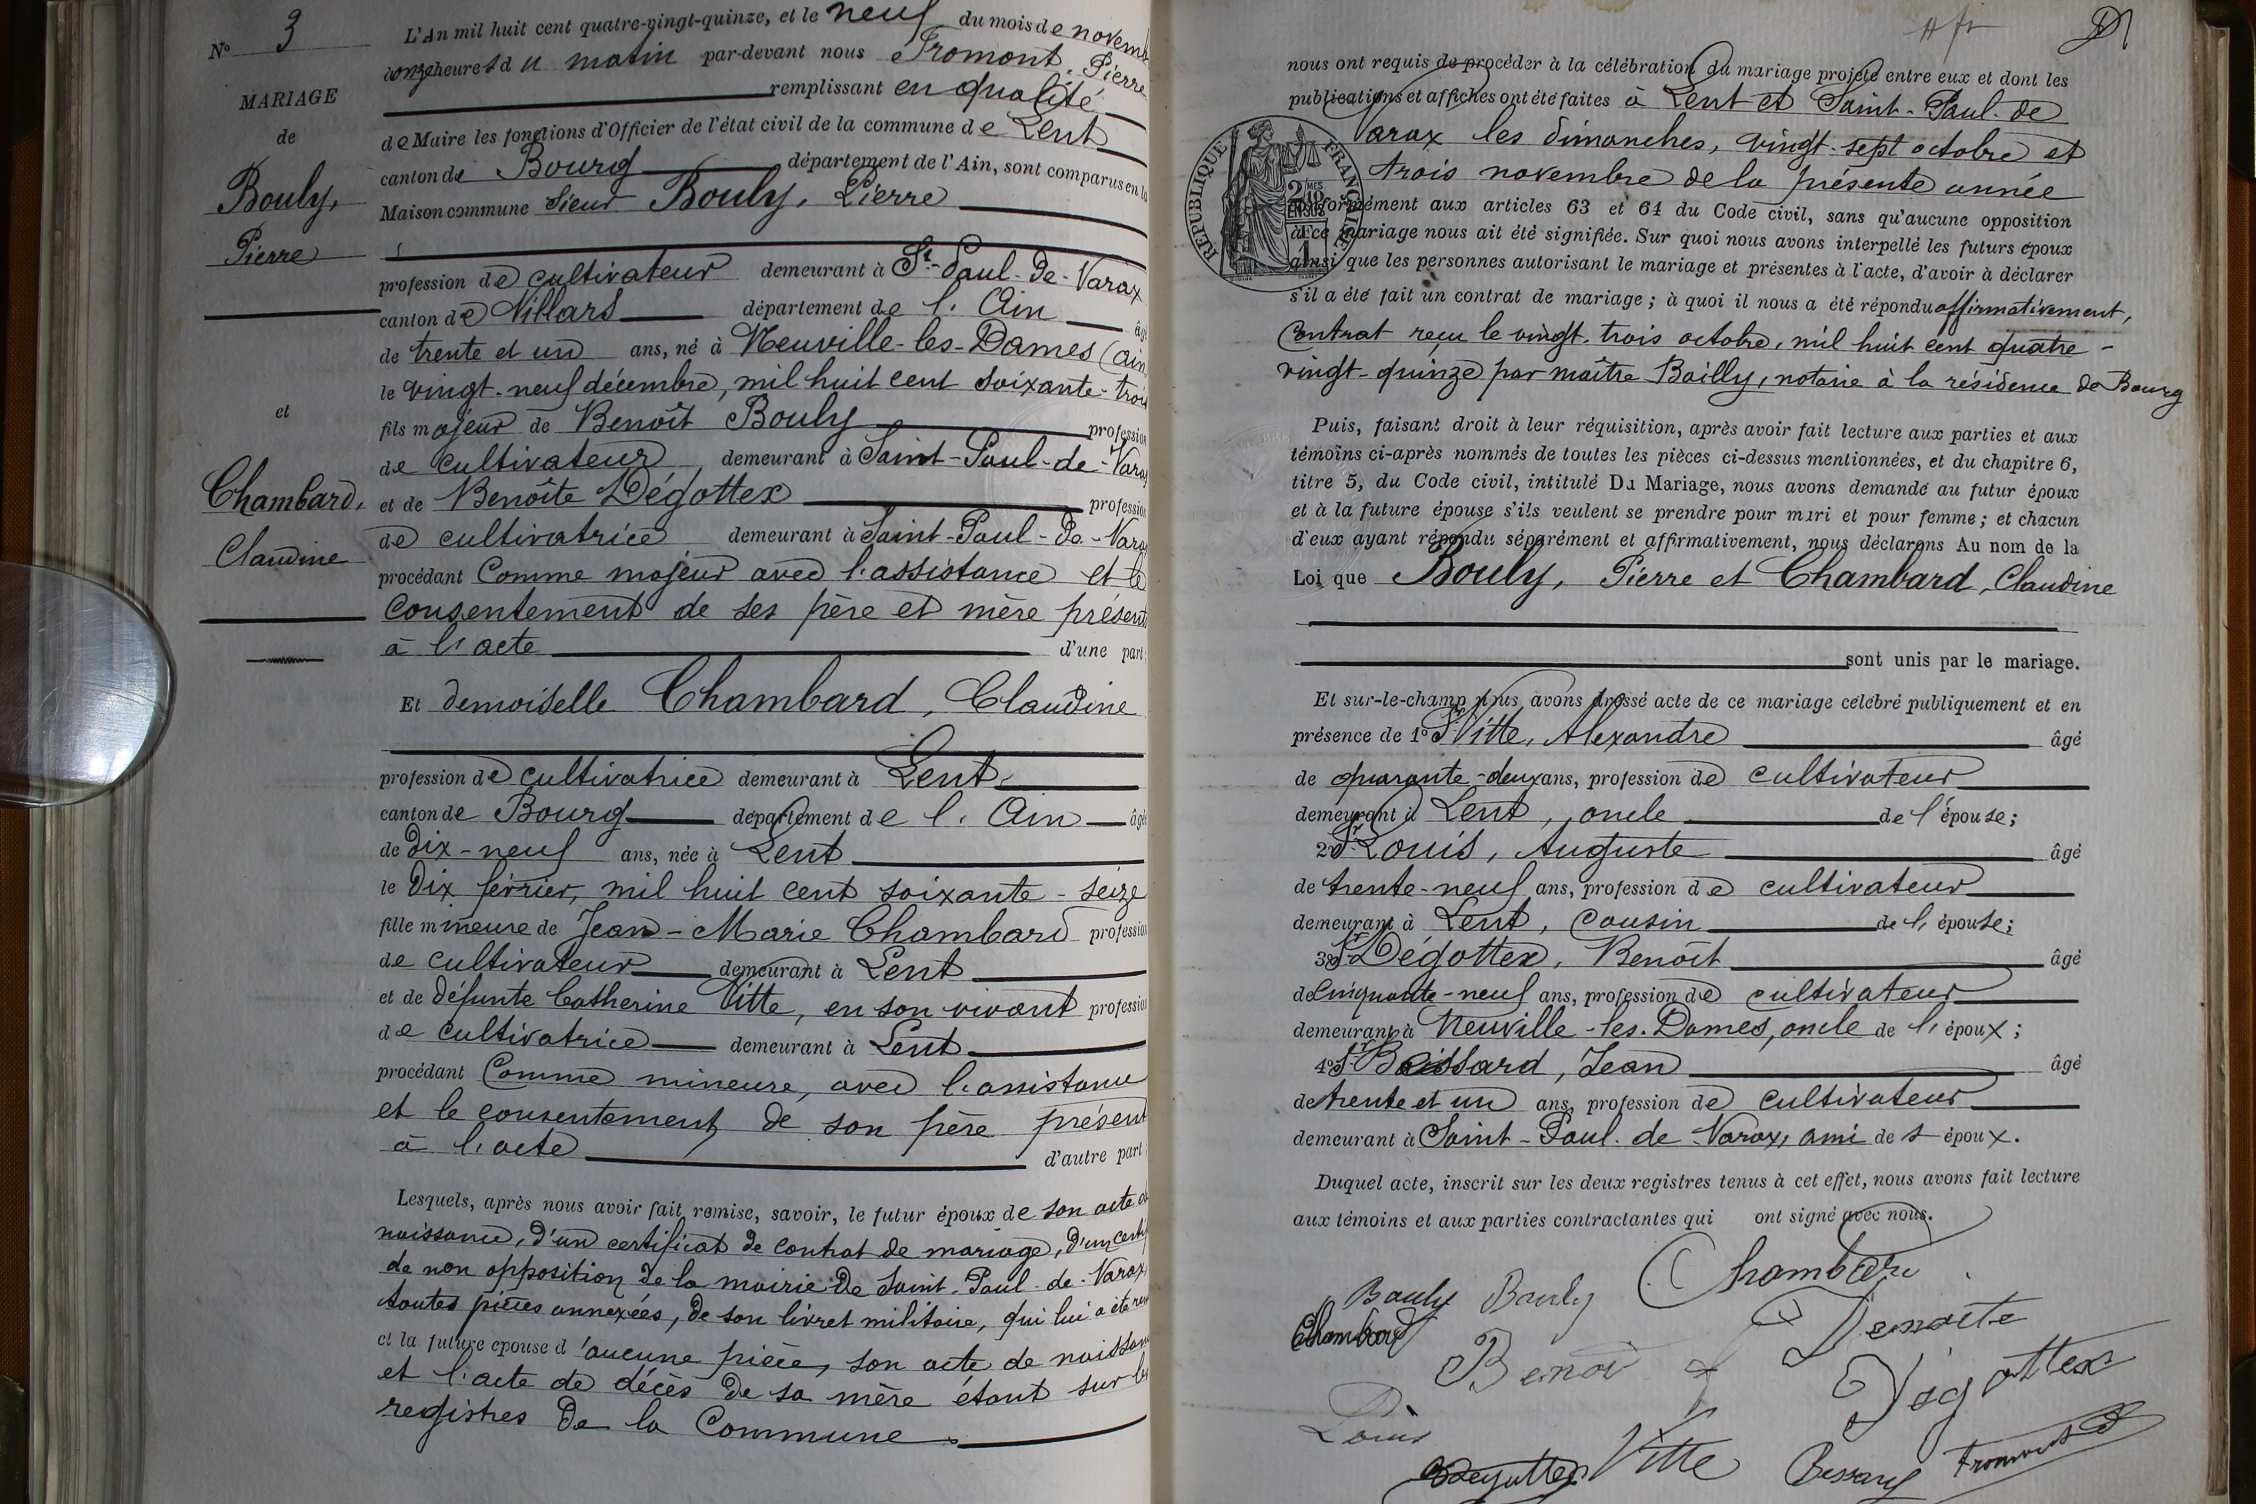 N° 3
MARIAGE
de
Bouly,
Pierre
et
Chambard,
Claudine
L'An mil huit cent quatre-vingt-quinze, et le neuf du mois de novemb
onze heures du matin par-devant nous Fromont, Pierre
remplissant en qualité
de Maire les fonctions d'Officier de l'état civil de la commune de Lent
canton de Bourg département de l'Ain, sont comparus en la
Maison commune Sieur Bouly, Pierre
profession de cultivateur demeurant à St-Paul-de-Varax
canton de Villars département de l'Ain âgé
de trente et un ans, né à Neuville-les-Dames (ain
le vingt-neuf décembre, mil huit cent soixante-trois
fils majeur de Benoît Bouly profession
de cultivateur, demeurant à Saint-Paul-de-Varax
et de Benoîte Dégottex profession
de cultivatrice demeurant à Saint-Paul-de-Varax
procédant comme majeur avec l'assistance et le
consentement de ses père et mère présents
à l'acte d'une part
Et demoiselle Chambard, Claudine
profession de cultivatrice demeurant à Lent
canton de Bourg département de l'Ain âgée
de dix-neuf ans, née à Lent
le dix février, mil huit cent soixante-seize
fille mineure de Jean-Marie Chambard profession
de cultivateur demeurant à Lent
et de défunte Catherine Vitte, en son vivant profession
de cultivatrice demeurant à Lent
procédant comme mineure, avec l'assistance
et le consentement de son père présent
à l'acte d'autre part
Lesquels, après nous avoir fait remise, savoir, le futur époux de son acte de
naissance, d'un certificat de contrat de mariage, d'un certif
de non opposition de la mairie de Saint-Paul-de-Varax,
toutes pièces annexées, de son livret militaire, qui lui a été
et la future épouse d'aucune pièce, son acte de naissance
et l'acte de décès de sa mère étant sur les
registres de la Commune.
nous ont requis de procéder à la célébration du mariage projeté entre eux et dont les
publications et affiches ont été faites à Lent et Saint-Paul-de
Varax les dimanches, vingt-sept octobre et
trois novembre de la présente année
REPUBLIQUE FRANÇAISE
conformément aux articles 63 et 64 du Code civil, sans qu'aucune opposition
à ce mariage nous ait été signifiée. Sur quoi nous avons interpellé les futurs époux
ainsi que les personnes autorisant le mariage et présentes à l'acte, d'avoir à déclarer
s'il a été fait un contrat de mariage; à quoi il nous a été répondu affirmativement,
contrat reçu le vingt-trois octobre, mil huit cent quatre-
vingt-quinze par maître Bailly, notaire à la résidence de Bourg
Puis, faisant droit à leur réquisition, après avoir fait lecture aux parties et aux
témoins ci-après nommés de toutes les pièces ci-dessus mentionnées, et du chapitre 6,
titre 5, du Code civil, intitulé Du Mariage, nous avons demandé au futur époux
et à la future épouse s'ils veulent se prendre pour mari et pour femme; et chacun
d'eux ayant répondu séparément et affirmativement, nous déclarons Au nom de la
Loi que Bouly, Pierre et Chambard, Claudine
sont unis par le mariage.
Et sur-le-champ nous avons dressé acte de ce mariage célébré publiquement et en
présence de 1° Sr Vitte, Alexandre âgé
de quarante-deux ans, profession de cultivateur
demeurant à Lent, oncle de l'épouse;
2° Sr Louis, Auguste âgé
de trente-neuf ans, profession de cultivateur
demeurant à Lent, cousin de l'épouse;
3° Sr Dégottex, Benoît âgé
de cinquante-neuf ans, profession de cultivateur
demeurant à Neuville-les-Dames, oncle de l'époux;
4° Sr Bessard, Jean âgé
de trente et un ans, profession de cultivateur
demeurant à Saint-Paul-de-Varax, ami des époux.
Duquel acte, inscrit sur les deux registres tenus à cet effet, nous avons fait lecture
aux témoins et aux parties contractantes qui ont signé avec nous.
Chambard
Bouly Bouly
Chambard
Benoite
Benoi
Digottex
Louis
Degottex Vitte Bessard Fromont